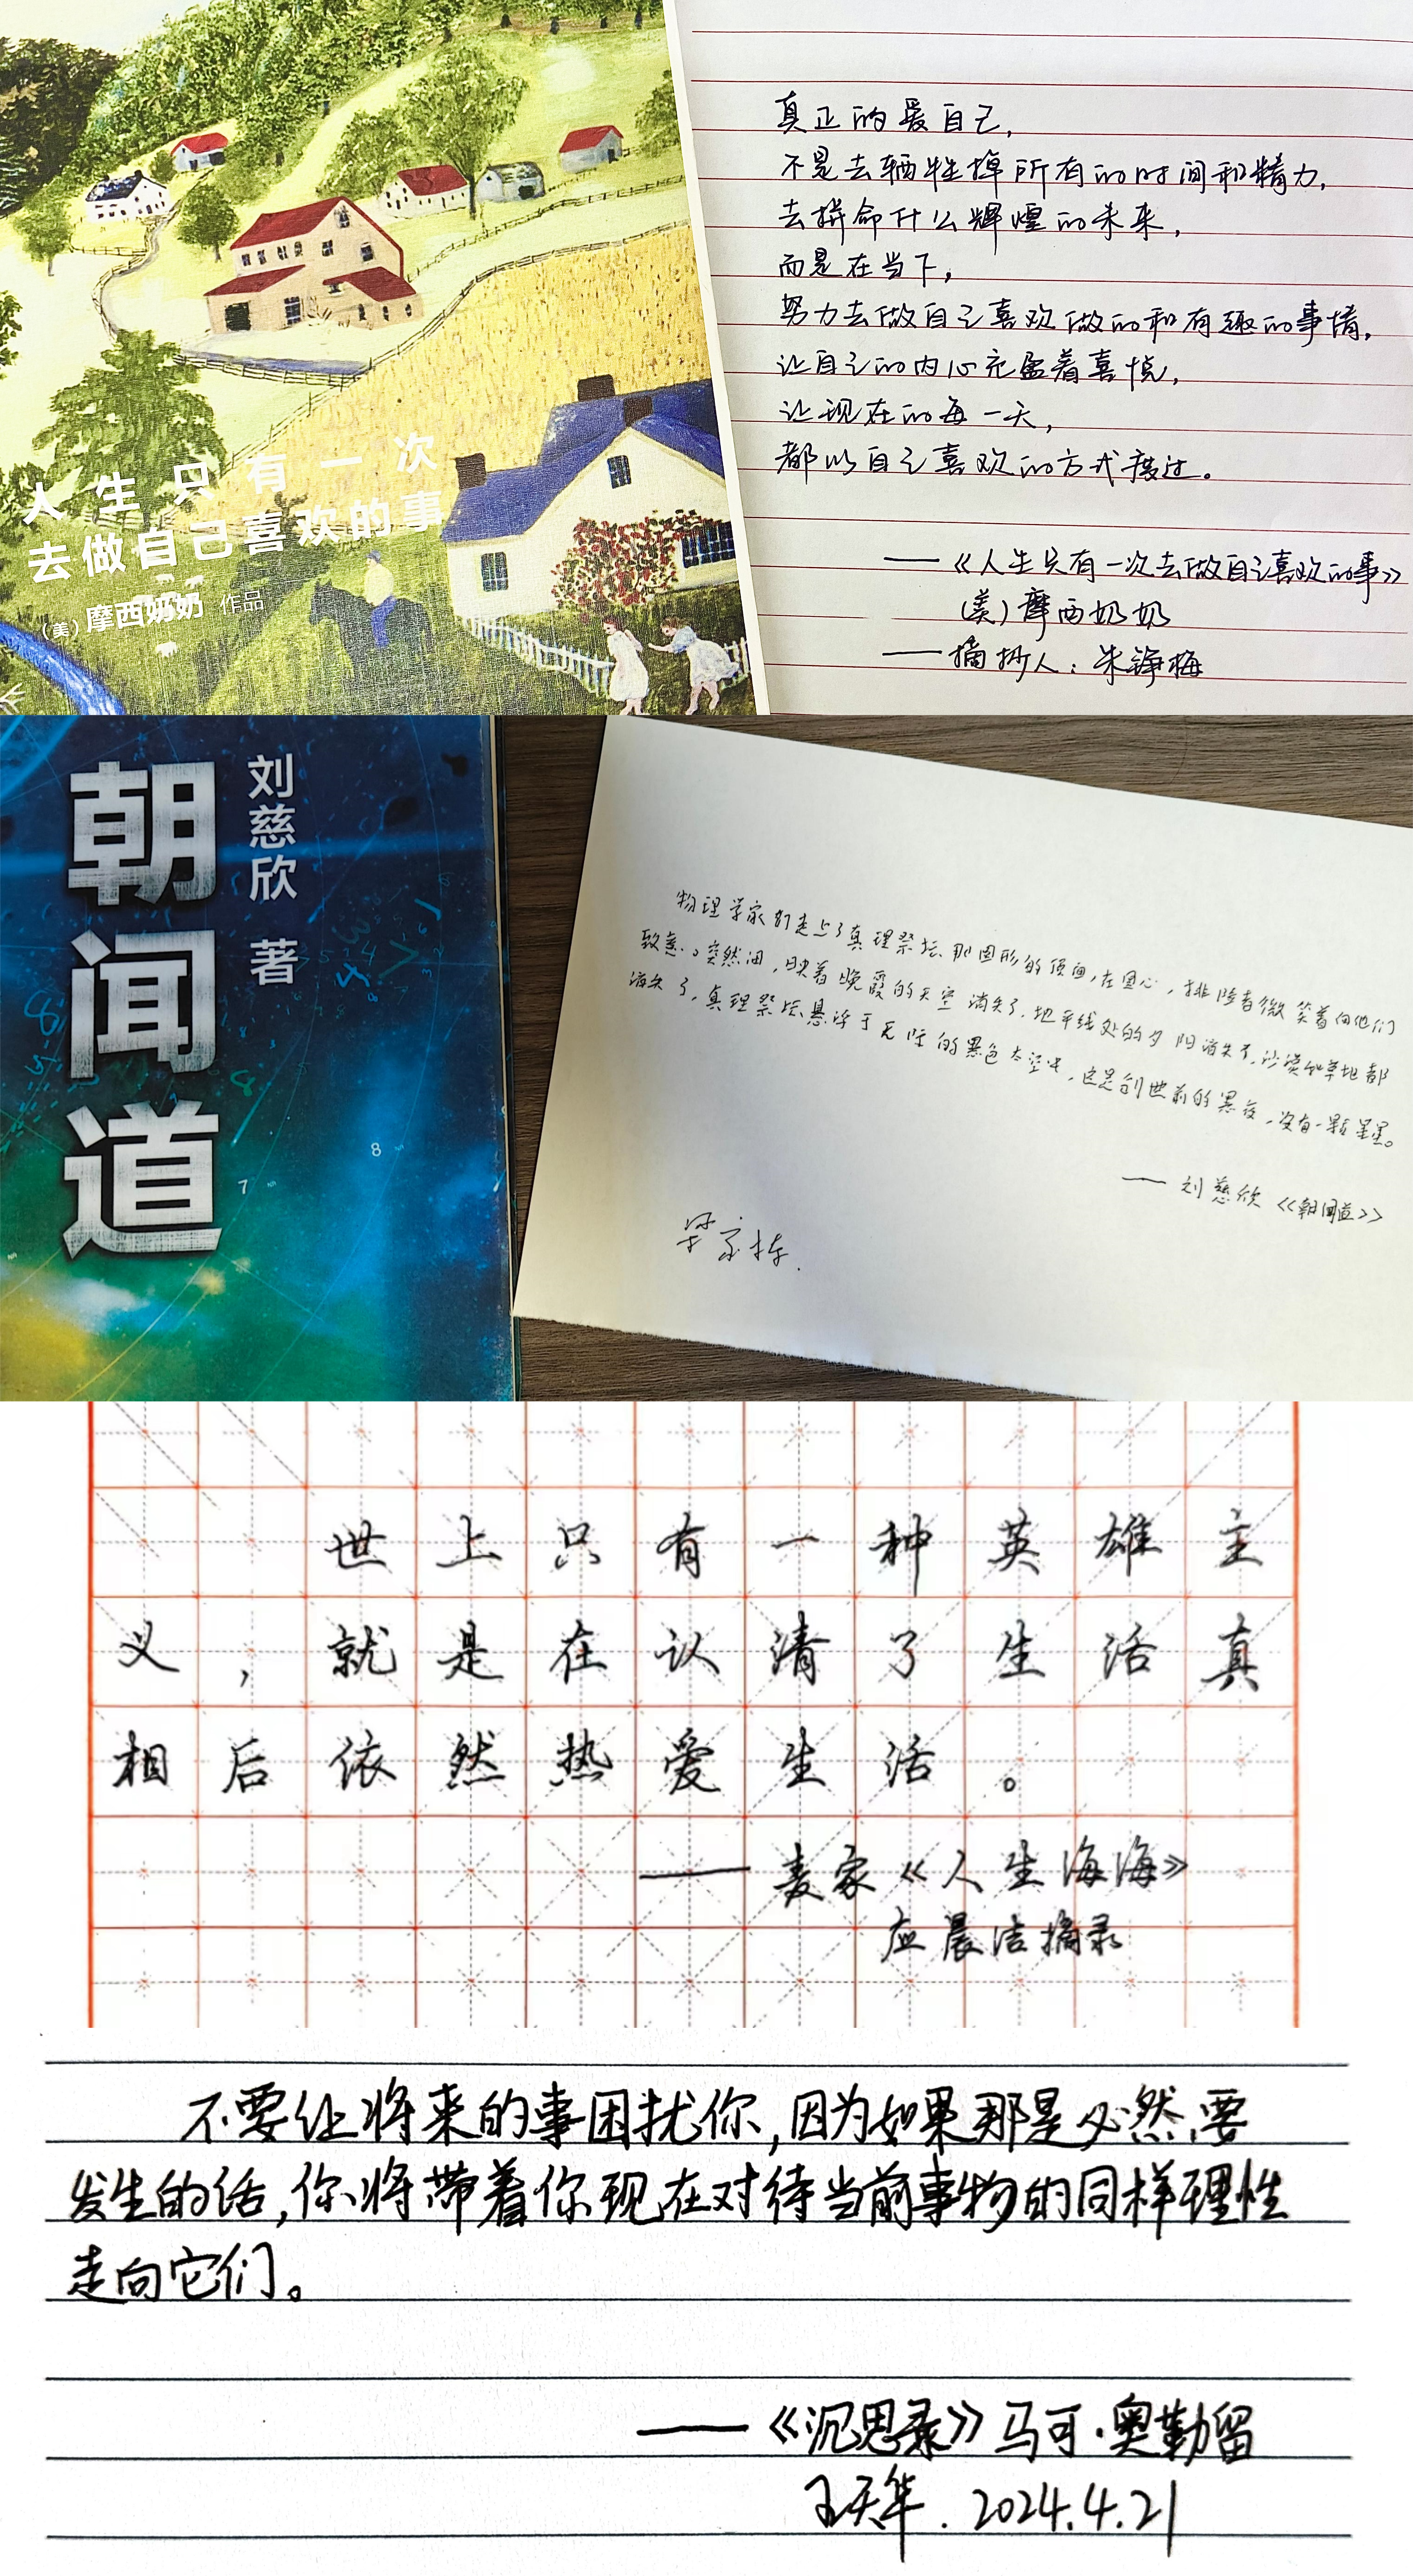 人生只有一次
去做自己喜欢的事
(美)摩西奶奶 作品
真正的爱自己,
不是去牺牲掉所有的时间和精力,
去拼命什么辉煌的未来,
而是在当下,
努力去做自己喜欢做的和有趣的事情,
让自己的内心充盈着喜悦,
让现在的每一天,
都以自己喜欢的方式度过。
——《人生只有一次去做自己喜欢的事》
(美)摩西奶奶
——摘抄人:朱铮梅
朝闻道
刘慈欣 著
8
7
物理学家们走上了真理祭坛那圆形的顶面,在圆心,排险者微笑着向他们
致意。突然间,映着晚霞的天空消失了,地平线处的夕阳消失了,沙漠和草地都
消失了,真理祭坛悬浮于无际的黑色太空中,这是创世前的黑夜,没有一颗星星。
——刘慈欣《朝闻道》
世上只有一种英雄主
义,就是在认清了生活真
相后依然热爱生活。
——麦家《人生海海》
应晨洁摘录
不要让将来的事困扰你,因为如果那是必然要
发生的话,你将带着你现在对待当前事物的同样理性
走向它们。
——《沉思录》马可·奥勒留
王天华.2024.4.21